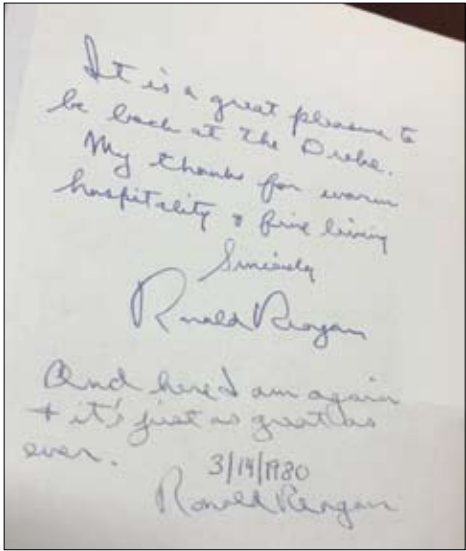 It is a great pleasure to
be back at The Drake.
My thanks for warm
hospitality & fine living
Sincerely
Ronald Reagan
And here I am again
+ it's just as great as
ever.
3/14/1980
Ronald Reagan